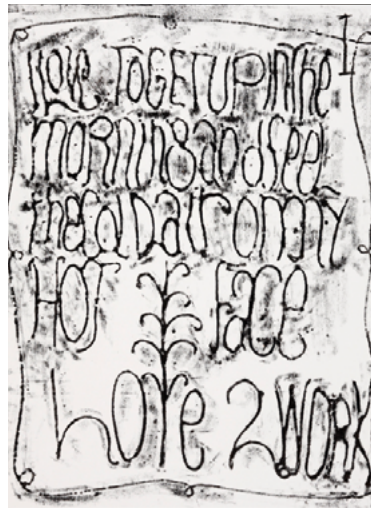 I
iLove TO GET UP IN The
moRninG anD feel
the ColD air on my
HOT FaCe
Love 2 WORK